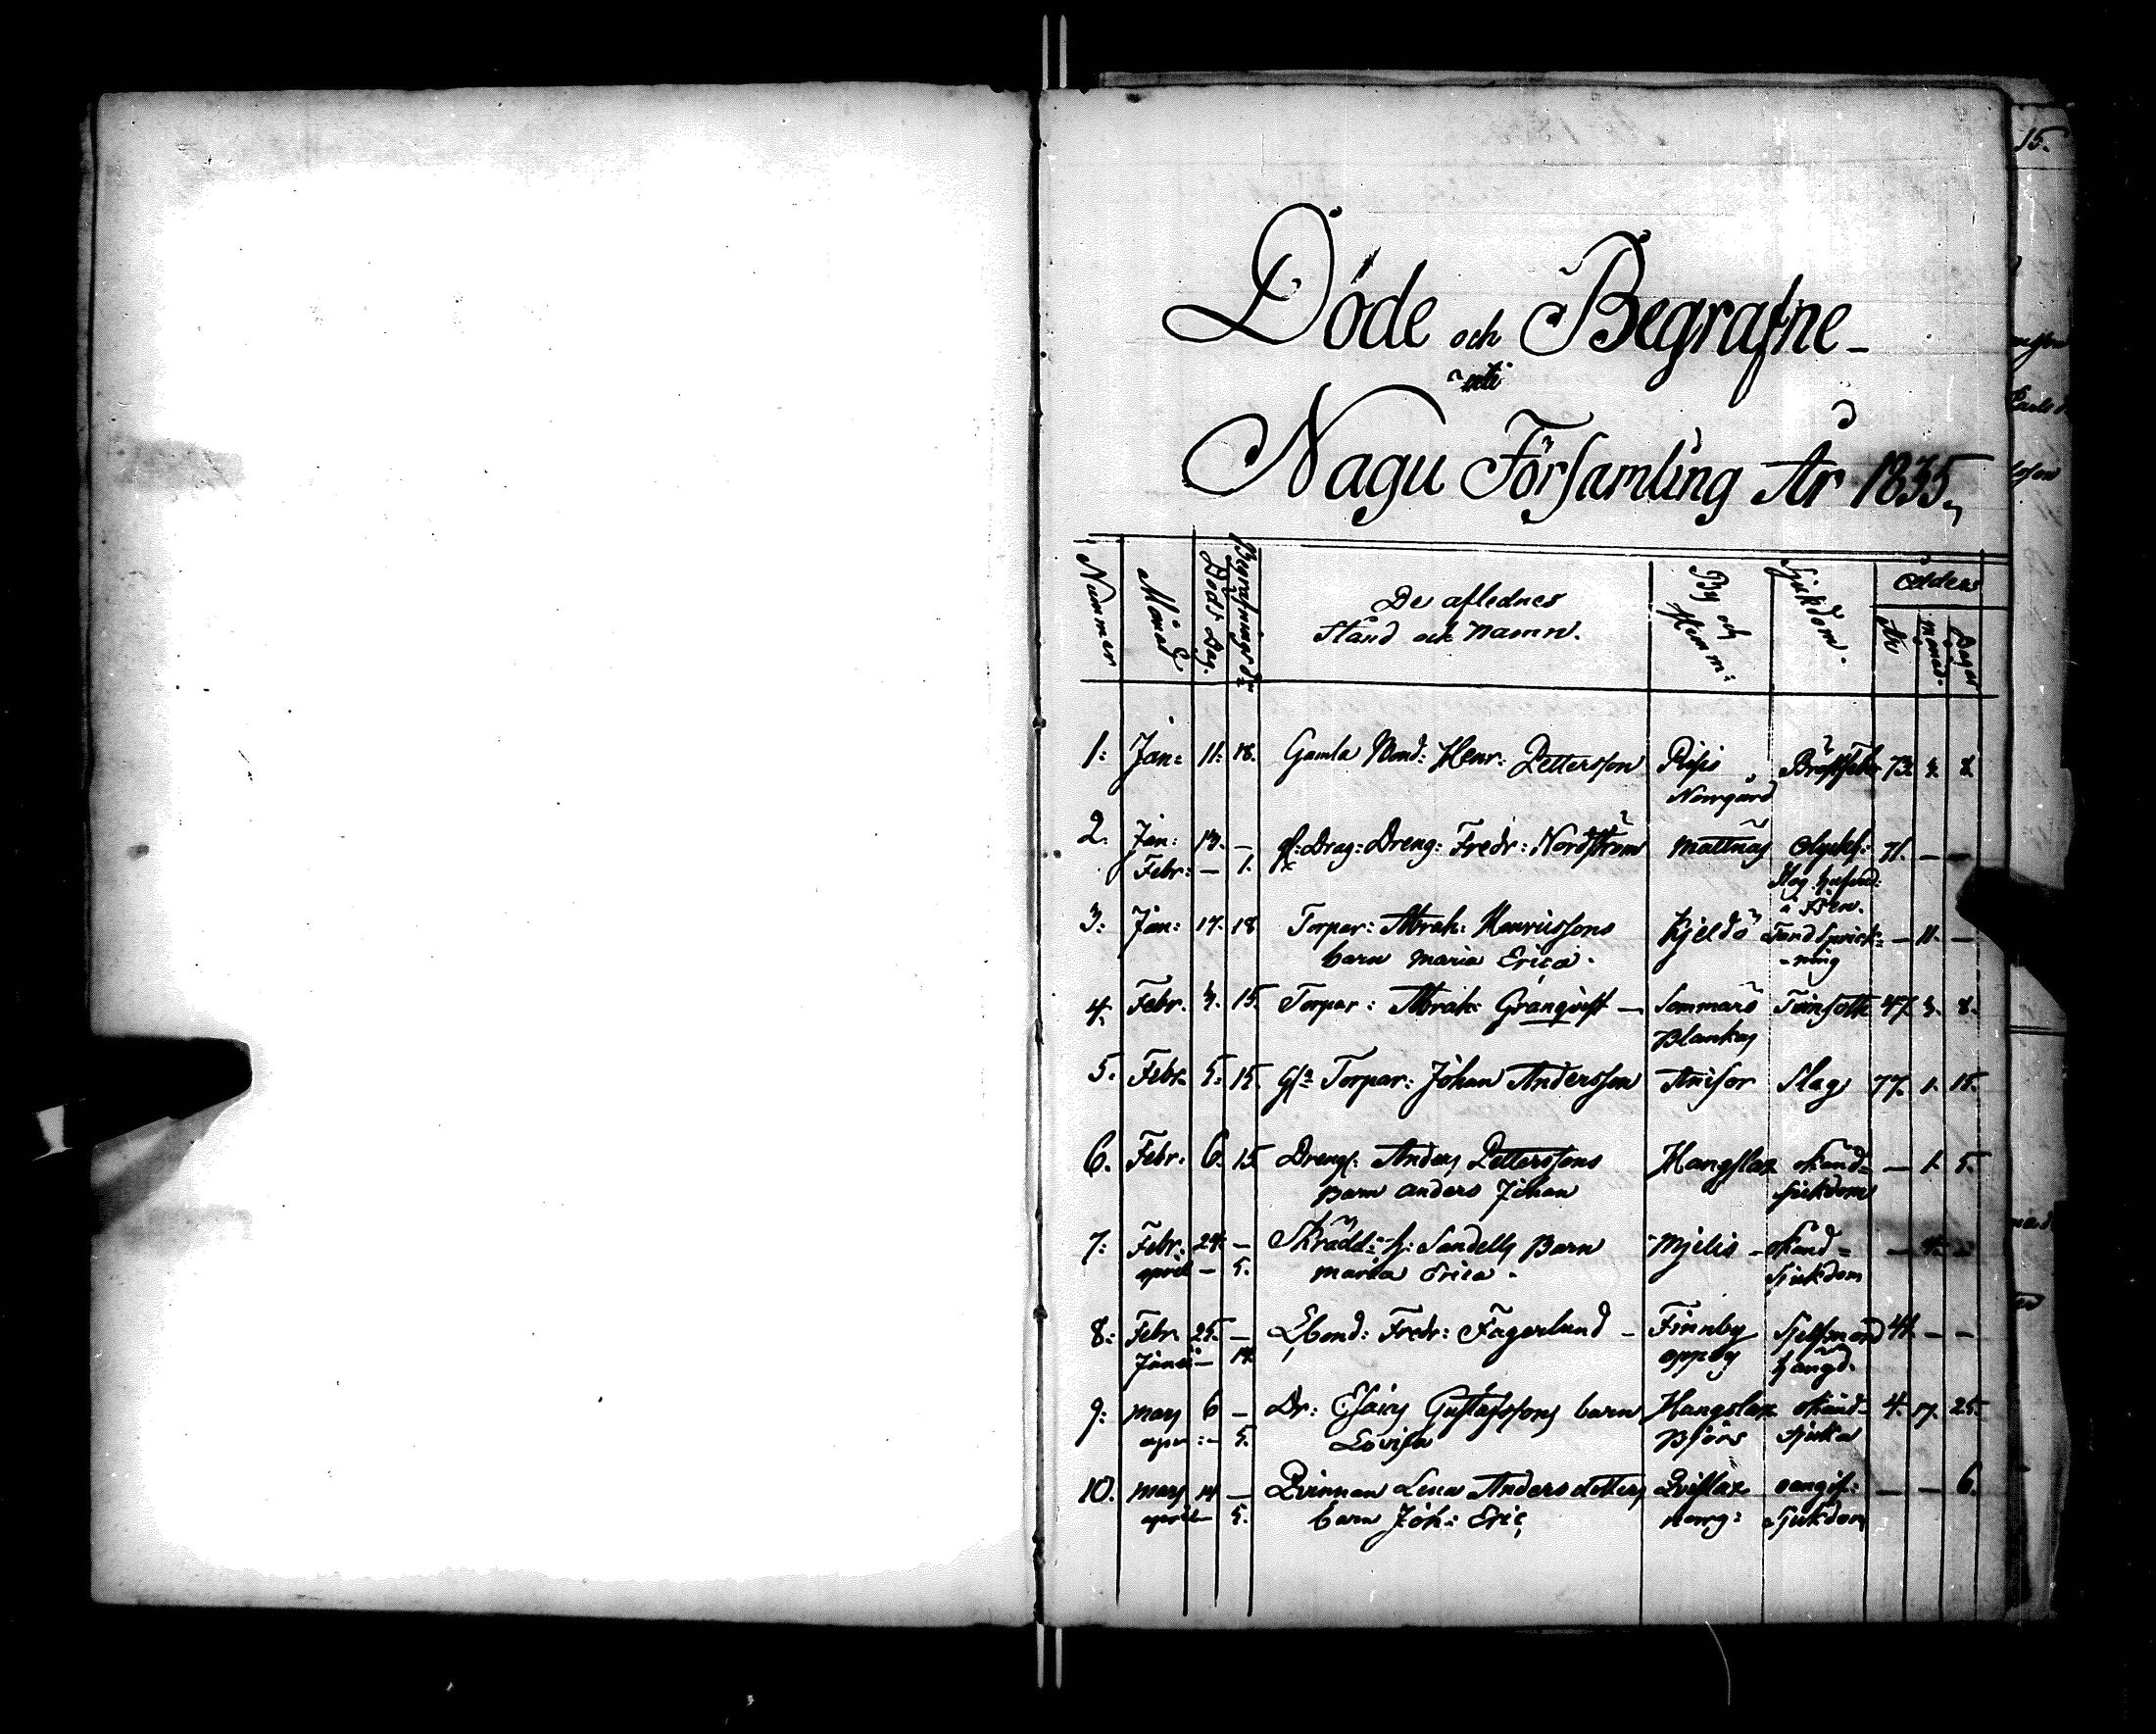 15.
Döde och Begrafne
uti
Nagu Församling År 1835.
Nummer Månad Döds dag. Begrafnings dn De aflednes By och Hemm: Sjukdom. Ålder
Stånd och namn. År Månad. Dagar
1: Jan: 11: 18. Gamla Bond: Henr: Pettersson Risis Bröstfeber 73. 3. 8.
Norrgård
2. Jan: 13. — gl: Drag: Dreng: Fredr: Nordström Mattnäs Olyckl: 71. — —
Febr: — 1. Slag
3: Jan: 17. 18 Torpar: Abrah: Henrikssons Kjeldö Tandsprick= — 11. —
barn Maria Erica. -ning
4. Febr. 3. 15. Torpar: Abrah: Granqvist — Sommarö Tvinsott 47. 3. 8.
Blankas
5. Febr. 5. 15. Gl: Torpar: Johan Andersson Anisor Slag 77. 1. 15.
6. Febr: 6. 15. Drengs: Anders Petterssons Hangslax okänd= — 1. 5.
Barn Anders Johan sjukdom
7: Febr: 24. — Skrädd: h: Sandells Barn Mjelis — okänd=
april — 5. Maria Erica. sjukdom
8: Febr. 25. — Lbond: Fredr: Fagerlund — Finnby Sjelfmord 41. — —
Junii — 14. oppby hängd.
9: Mars 6 — Dr: Esaias Gustafssons barn Hangslax okänd= 4. 17. 25.
apr: — 5. Lovisa Björs Sjuka
10. Mars 14 — Qvinnan Lena Andersdotters Qvislax oangif: — — 6.
april — 5. barn Joh: Eric norrg: Sjukdom